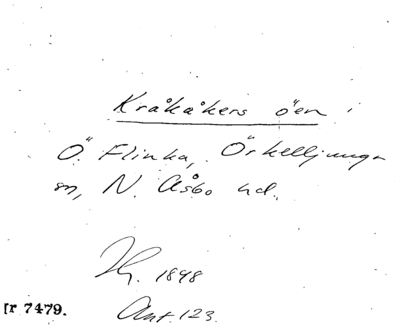 Kråkåkers ö'en
Ö. Flinka, Örkelljunga
sn, N. Åsbo hd.
Hg. 1898
[r 7479.
Ant. 123.